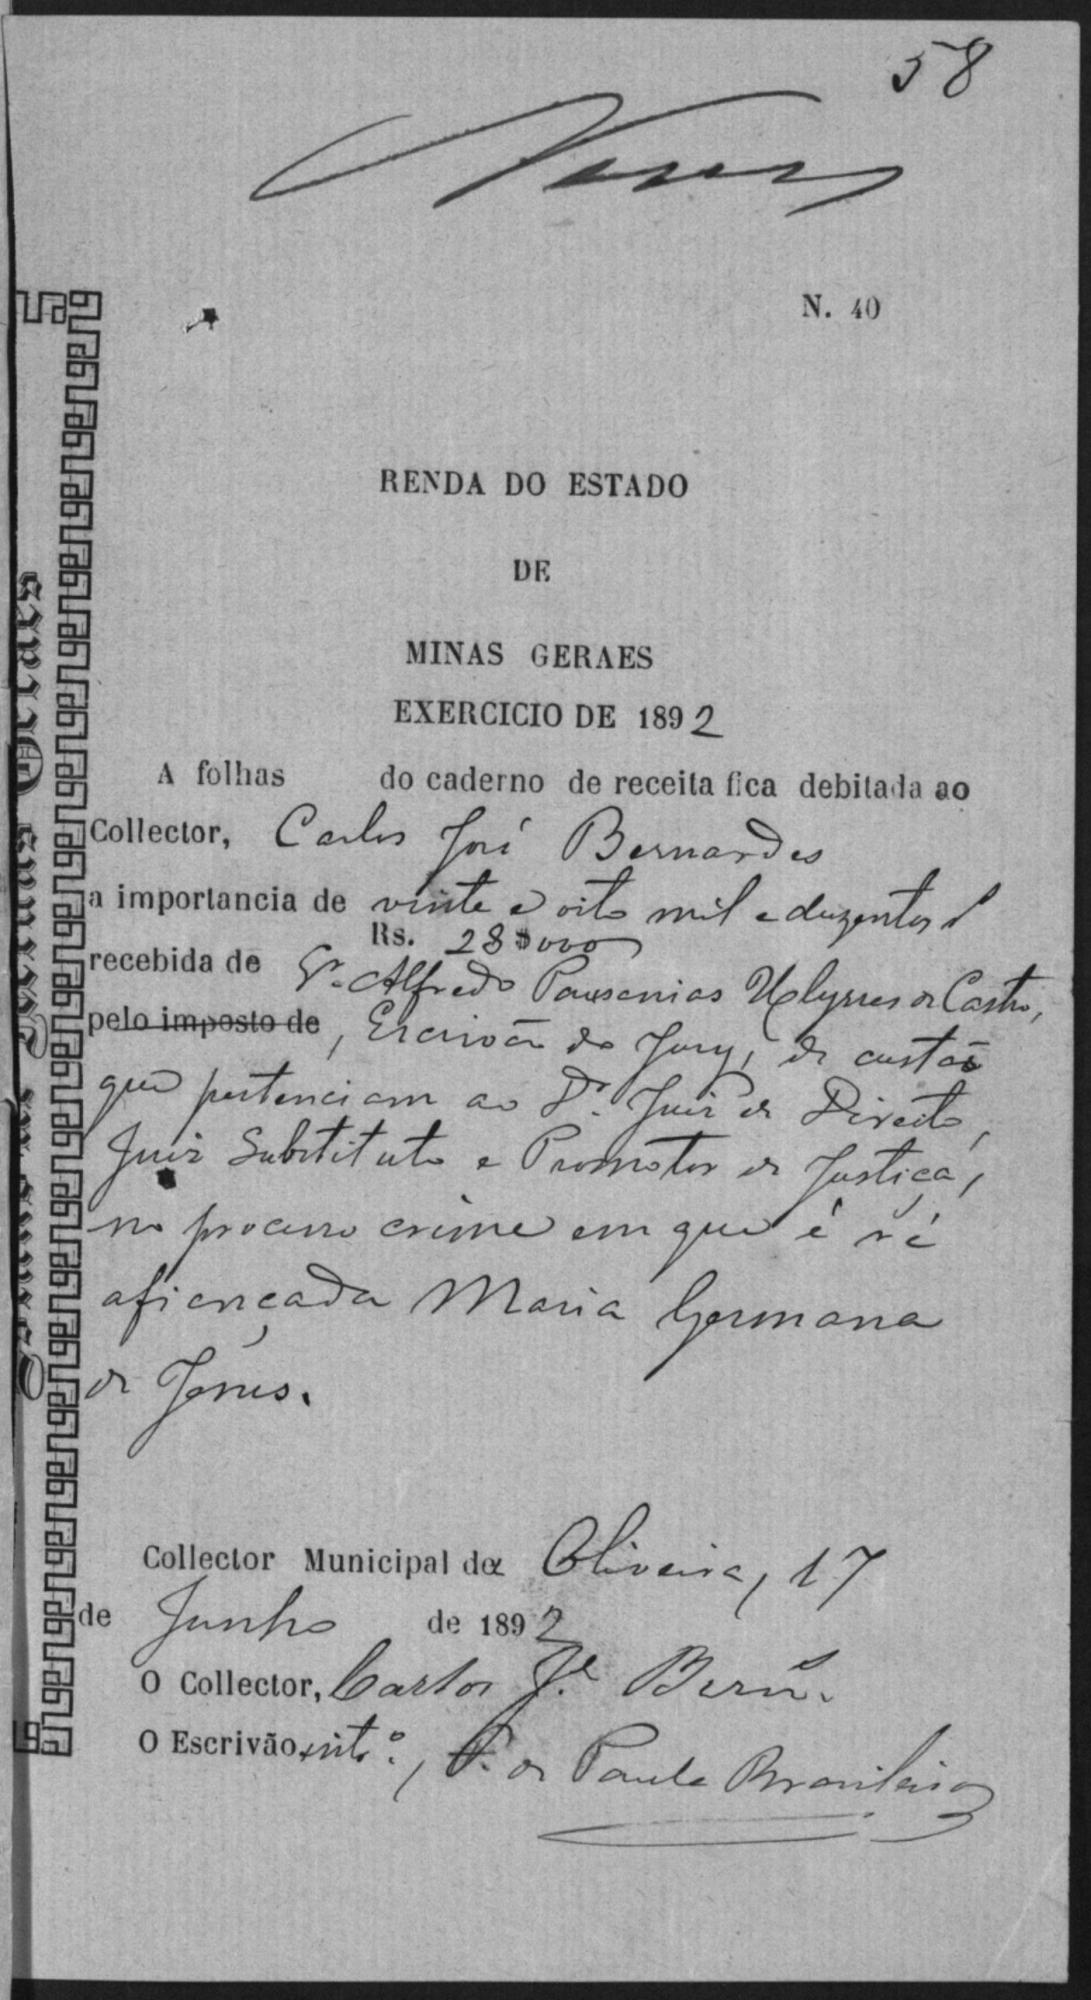 58
N. 40
RENDA DO ESTADO
DE
MINAS GERAES
EXERCICIO DE 1892
A folhas do caderno de receita fica debitada ao
Collector, Carlos José Bernardes
a importancia de vinte e oito mil e duzentos r
Rs. 28$000
recebida de Sr. Alfredo Pausanias Ulysses de Castro,
pelo imposto de, Escrivão do Jury, de custas
que pertenciam ao Dr. Juiz de Direito,
Juiz Substituto e Promotor de Justiça,
no processo crime em que é ré
afiançada Maria Germana
de Jesus.
Collector Municipal de Oliveira, 17
de Junho de 1892
O Collector, Carlos Je. Bern.
O Escrivão into., F. de Paula Brasileiro